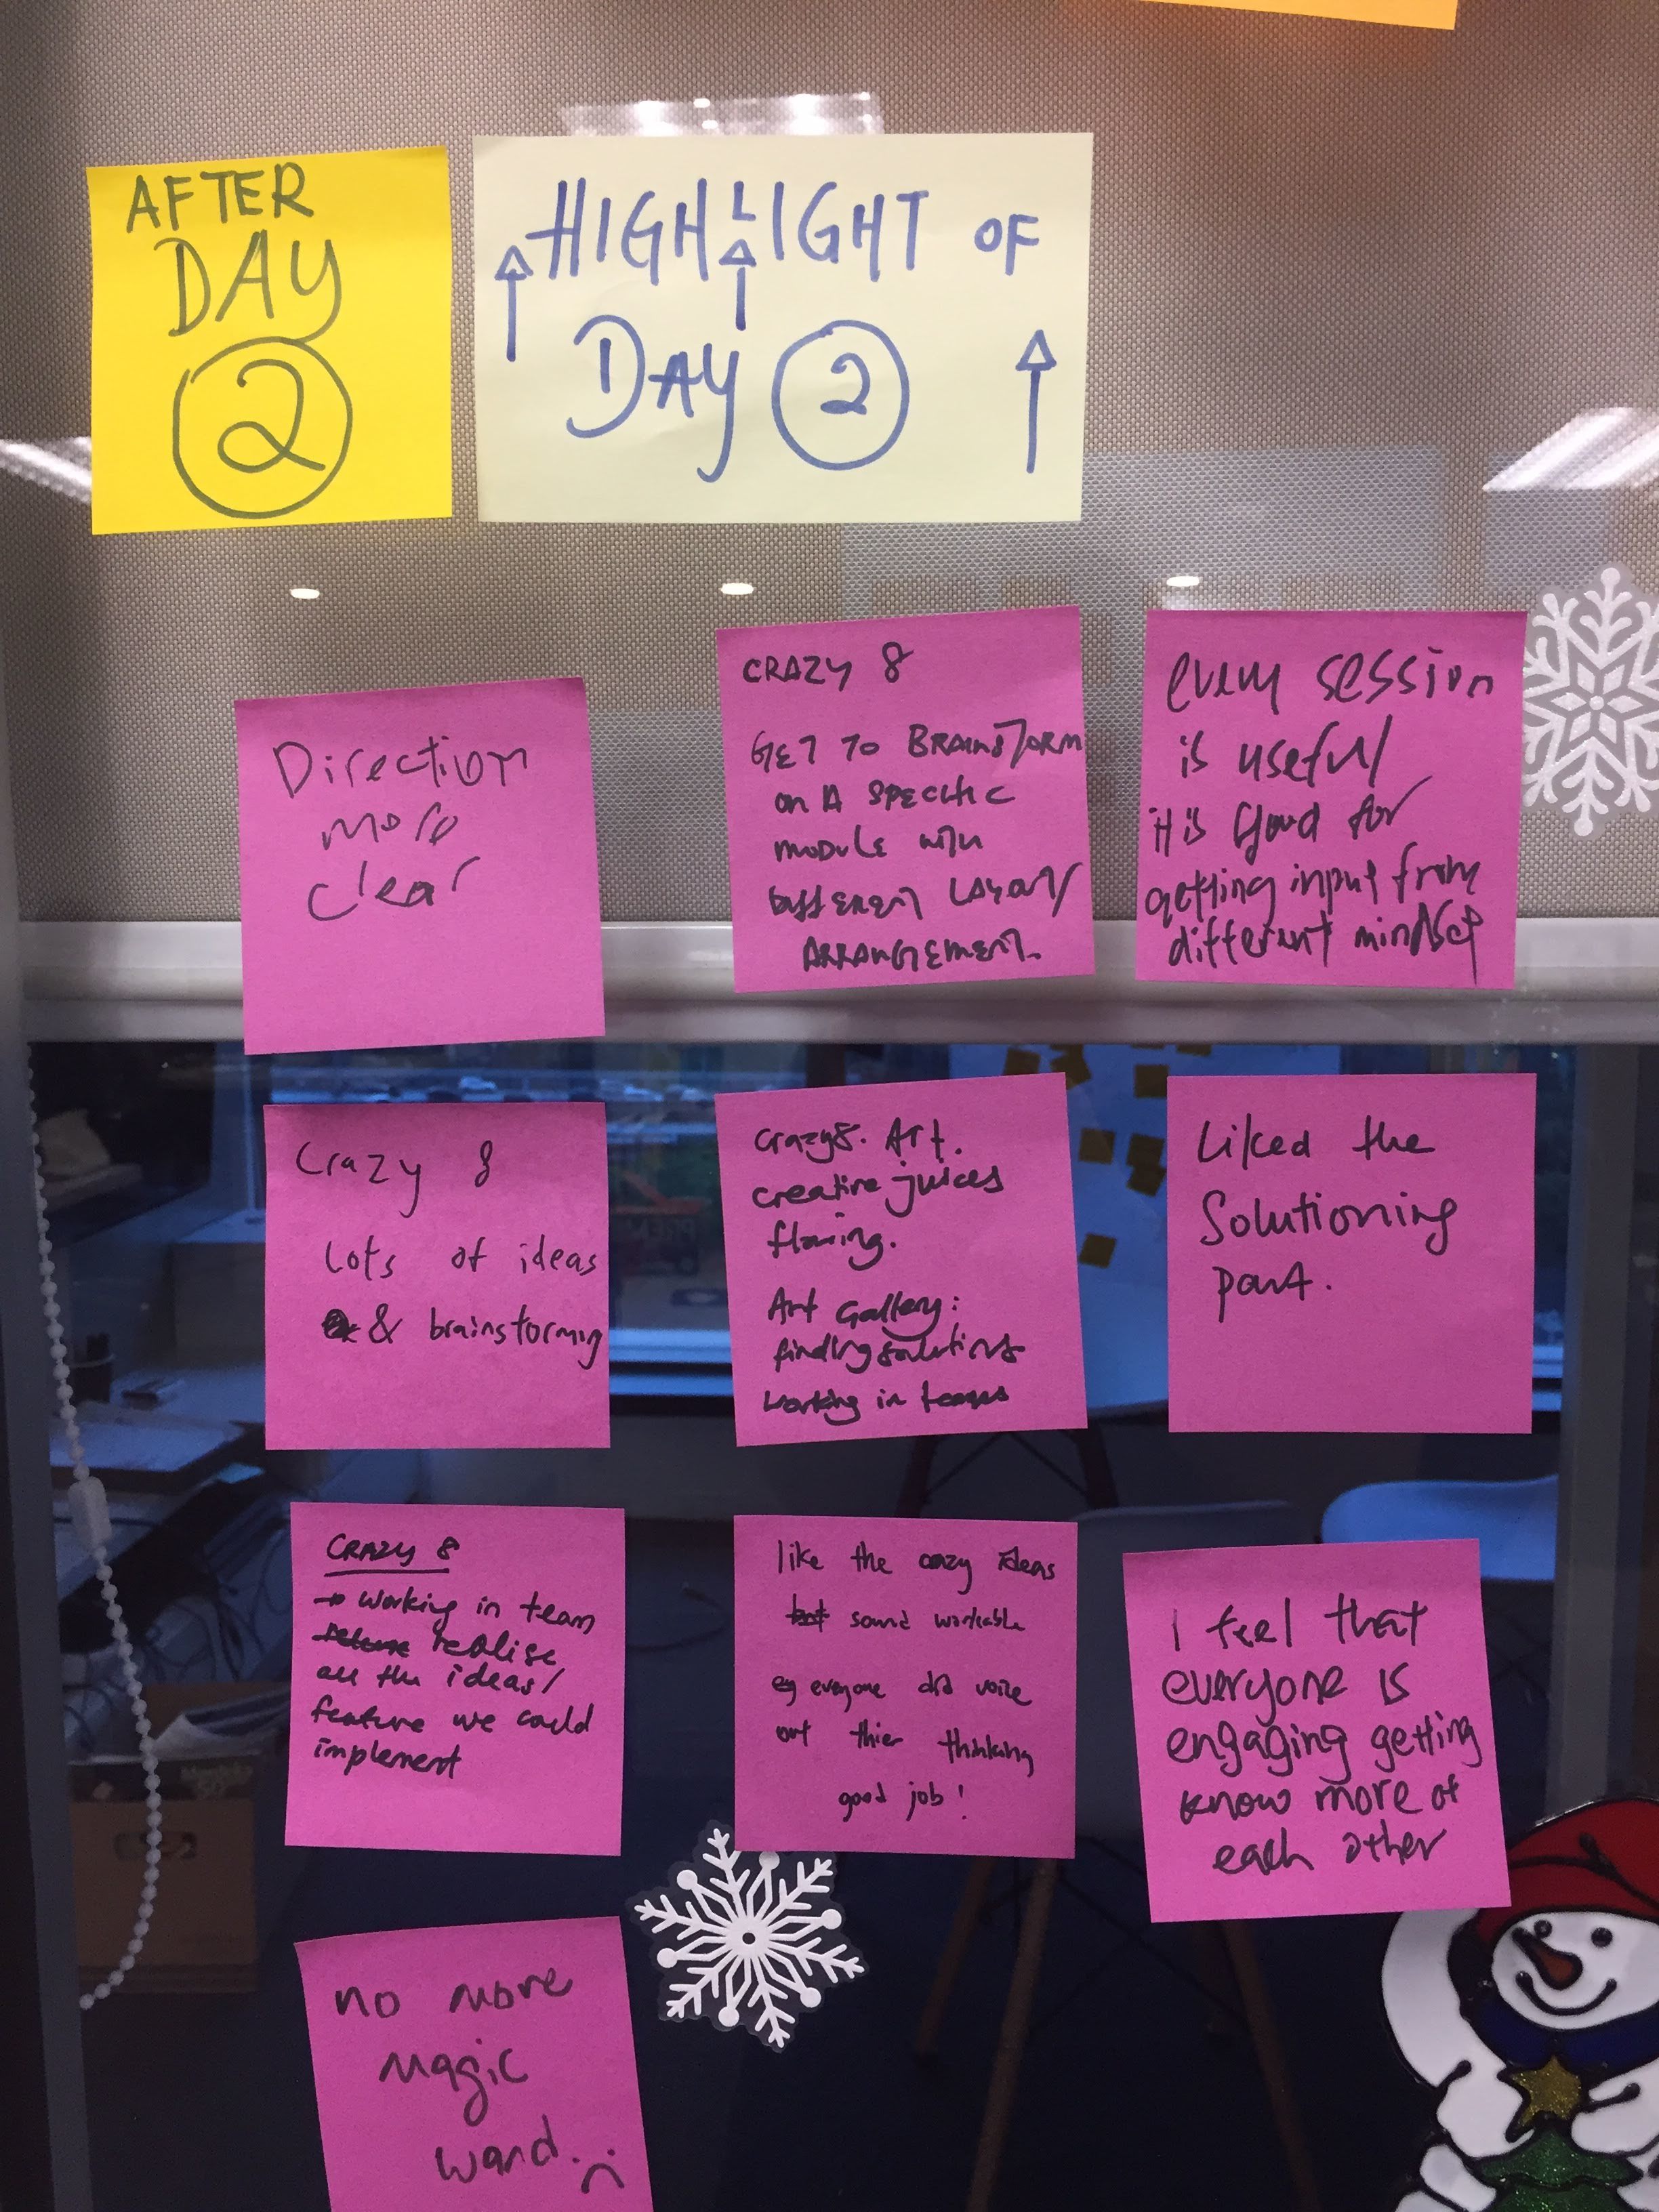 AFTER
DAY
2
HIGHLIGHT OF
DAY 2
Direction
more
clear
CRAZY 8
GET TO BRAINSTORM
ON A SPECIFIC
MODULE WITH
DIFFERENT LAYOUT/
ARRANGEMENT.
every session
is useful
it is good for
getting input from
different mindset
Crazy 8
Lots of ideas
& brainstorming
Crazy8. Art.
creative juices
flowing.
Art Gallery:
finding solutions
working in teams
Liked the
Solutioning
part.
CRAZY 8
→ working in team
realise
all the ideas/
feature we could
implement
like the crazy ideas
but sound workable
eg everyone did voice
out thier thinking
good job!
I feel that
everyone is
engaging getting
know more of
each other
no more
magic
wand. :(